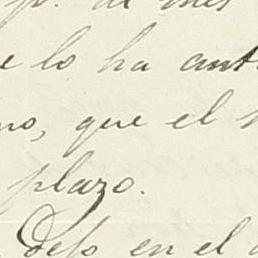 p. de mes
e lo ha ant
no, que el
plazo.
Dejo en el